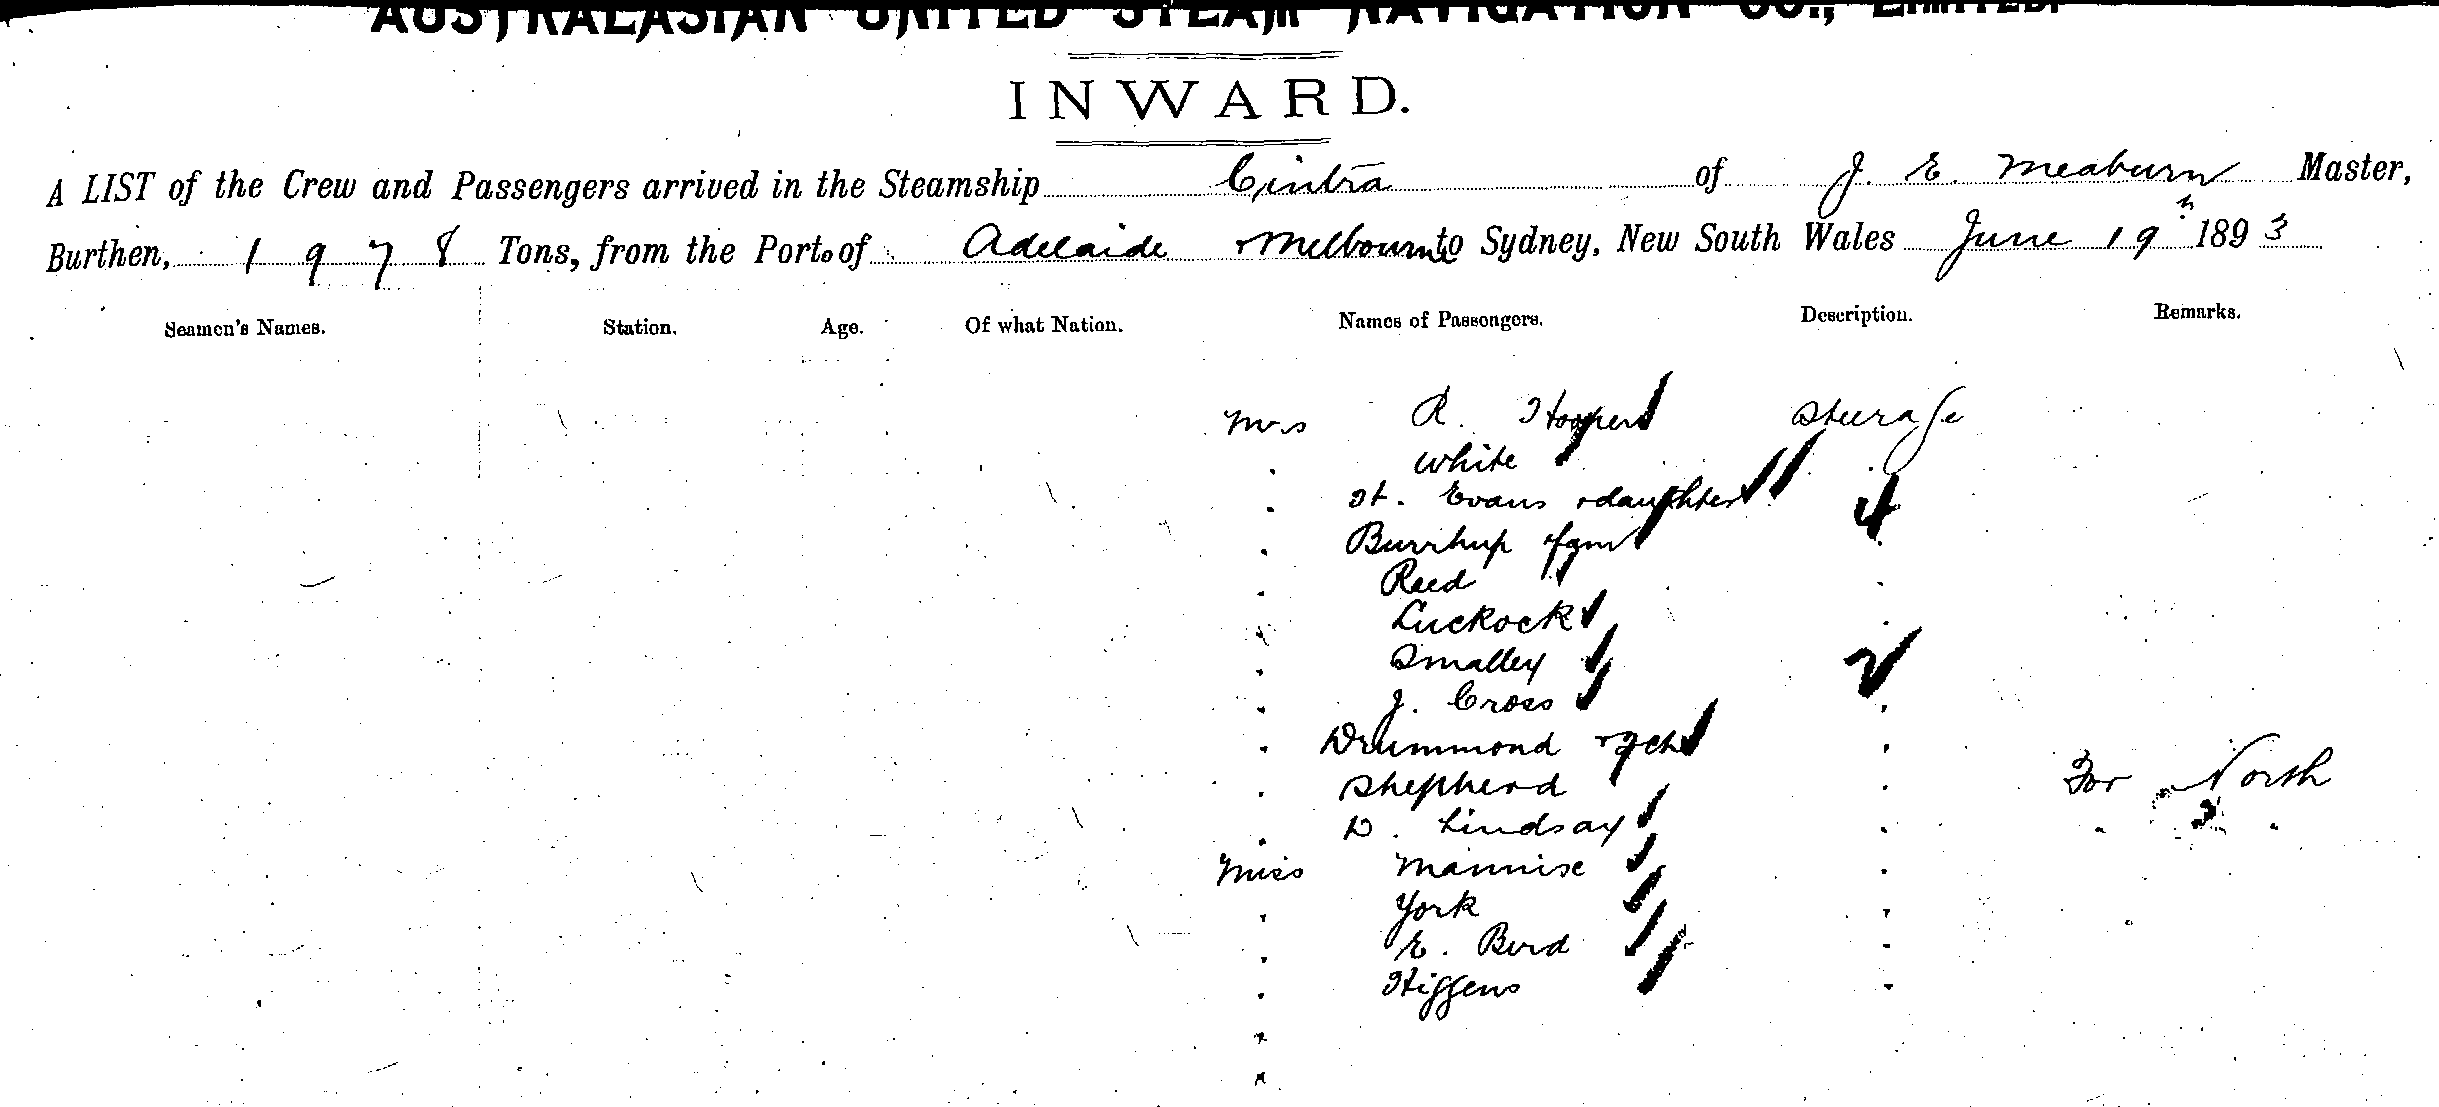 AUSTRALASIAN UNITED STEAM NAVIGATION CO., LIMITED.
INWARD.
A LIST of the Crew and Passengers arrived in the Steamship Cintra of J. E. Meaburn Master,
Burthen, 1978 Tons, from the Port of Adelaide + Melbourne to Sydney, New South Wales June 19th 1893
Seamen's Names. Station. Age. Of what Nation. Names of Passengers. Description. Remarks.
Mrs R. Hooper Steerage
" White "
" H. Evans + daughter "
" Burrhup "
" Reed "
" Luckock "
" Smalley "
" J. Cross "
" Drummond + 2 ch "
" Shepherd " For North
" D. Lindsay " " "
Miss Mannix "
" York "
" E. Bird "
" Higgens "